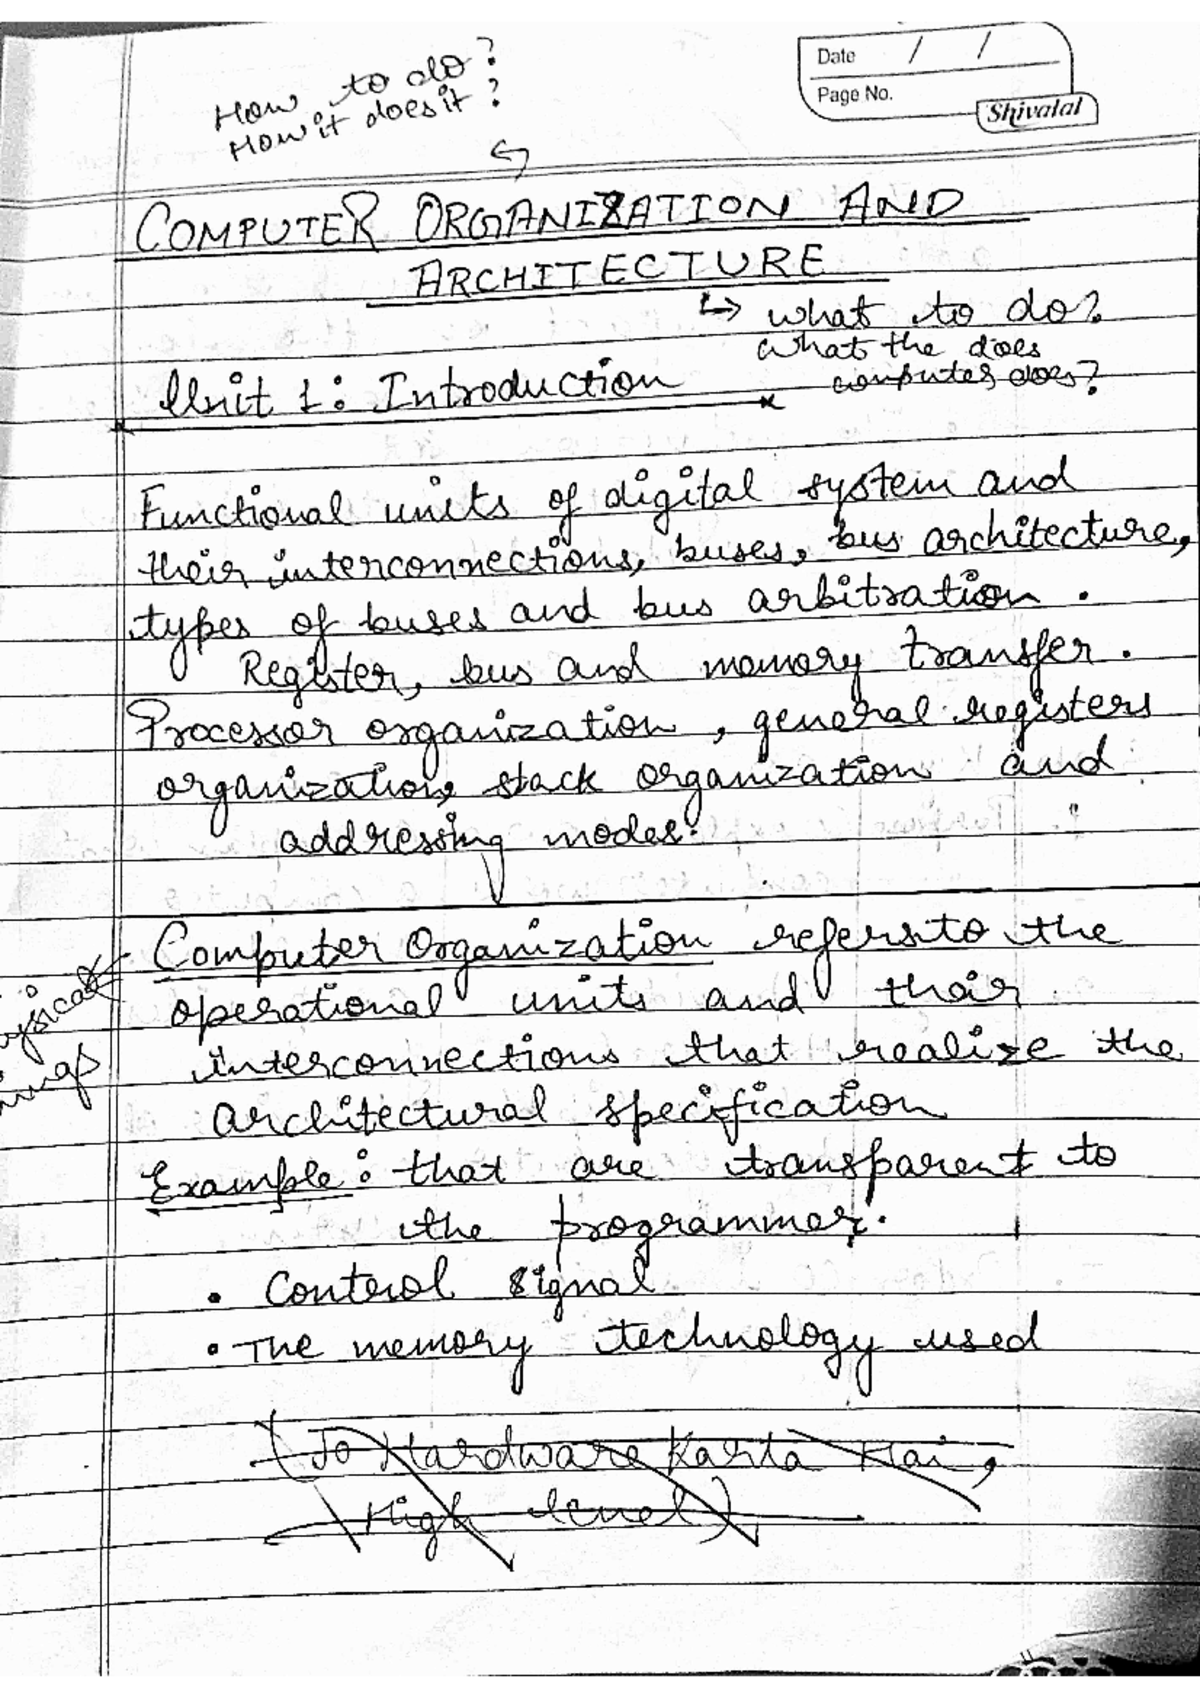 How to do?
How it does it?
Date / /
Page No.
Shivalal
COMPUTER ORGANIZATION AND
ARCHITECTURE
↳ what to do?
what the does
computer does?
Unit 1: Introduction
Functional units of digital system and
their interconnections, buses, bus architecture,
types of buses and bus arbitration.
Register, bus and memory transfer.
Processor organization, general registers
organization, stack organization and
addressing modes.
Computer Organization refers to the
operational units and their
interconnections that realize the
architectural specification
Example: that are transparent to
the programmer.
• Control signal
• The memory technology used
(Jo Hardware Karta Hai,
High level)